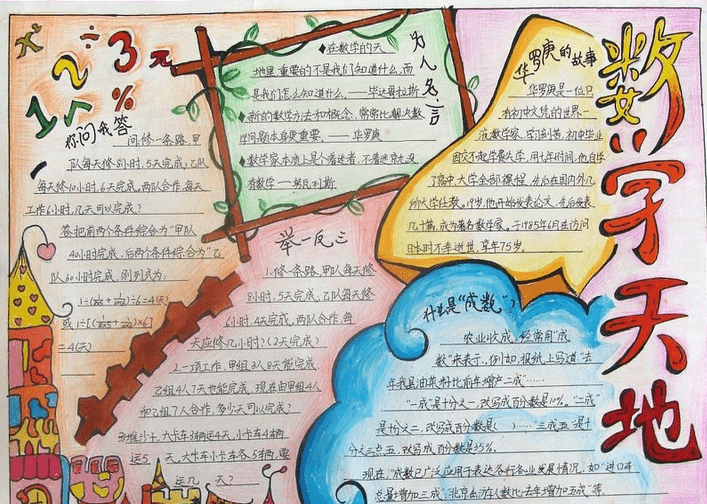 数学天地
1 2 3 元
÷
%
你问我答
问修一条路,甲
队每天修8小时,5天完成;乙队
每天修10小时,6天完成,两队合作,每天
工作6小时,几天可以完成?
答把前两个条件综合为“甲队
40小时完成,后两个条件综合为“乙
队60小时完成,则列式为:
=4(天)
为人名言
在数学的天
地里,重要的不是我们知道什么,而
是我们怎么知道什么。——毕达哥拉斯
新的数学方法和概念,常常比解决数
学问题本身更重要。——华罗庚
数学家本质上是个着迷者,不着迷就没
有数学——努瓦利斯
华罗庚的故事
华罗庚是一位只
有初中文凭的世界一
流数学家,学习刻苦,初中毕业
因交不起学费失学,用七年时间,他自学
了高中、大学全部课程,先后在国内外几
所大学任教,19岁,他开始发表论文,先后发表
几十篇,成为著名数学家,于1985年6月去访问
日本时不幸逝世,享年75岁。
举一反三
1.修一条路,甲队每天修
8小时,5天完成,乙队每天修
6小时,4天完成,两队合作,每
天应修几小时?(2天完成)
2.一项工作,甲组3人8天能完成,
乙组4人7天也能完成,现在由甲组4人
和乙组7人合作,多少天可以完成?
大卡车3辆运4天,小卡车4辆
运5天,大卡车小卡车各5辆,要
运几天?
什么是“成数”?
农业收成,经常用“成
数”来表示。例如,报纸上写道“去
年我县油菜籽比前年增产二成”……
“一成”是十分之一,改写成百分数是10%。“二成”
是十分之二,改写成百分数是( )……“三成五”是十
分之三点五,改写成百分数是35%。
现在,“成数”已广泛应用于表达各行各业发展情况。如“进口车
总量增加三成”,北京出游人数比去年增加两成”等